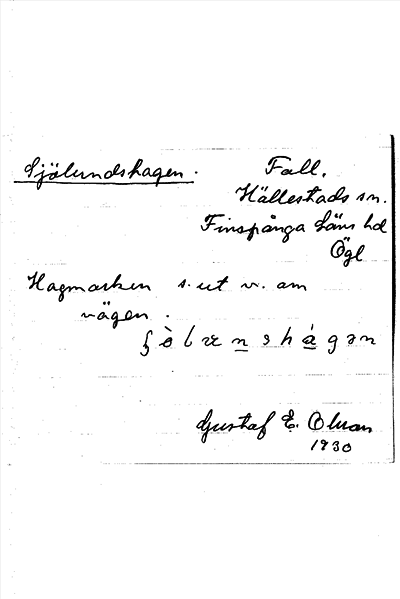 Sjölundshagen.
Fall.
Hällestads sn.
Finspånga läns hd
Ögl
Hagmarken s. ut v. om
vägen.
Gustaf E. Olson
1930